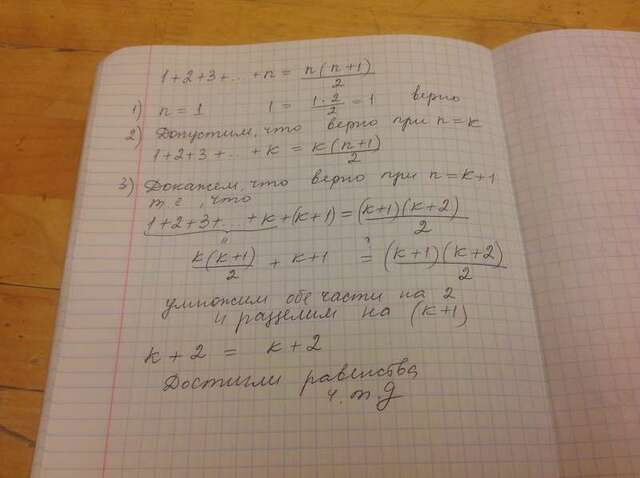 1+2+3+...+n = n(n+1)/2
1) n=1 1 = 1·2/2 = 1 верно
2) Допустим, что верно при n=k
1+2+3+...+k = k(n+1)/2
3) Докажем, что верно при n=k+1
т е, что
1+2+3+...+k+(k+1) = (k+1)(k+2)/2
"
k(k+1)/2 + k+1 ?= (k+1)(k+2)/2
умножим обе части на 2
и разделим на (k+1)
k+2 = k+2
Достигли равенства
ч.т.д